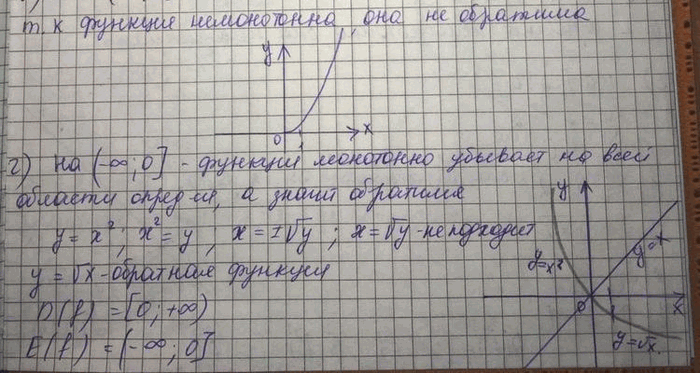 т.к функция немонотонна, она не обратима
y
0
x
г) на (-∞; 0] - функция монотонно убывает на всей
области опред-ия, а значит обратима
y = x²; x² = y, x = ±√y; x = √y - не подходит
y = √x - обратная функция
D(f) = [0; +∞)
E(f) = (-∞; 0]
y
y=x²
y=x
0
x
y=√x.